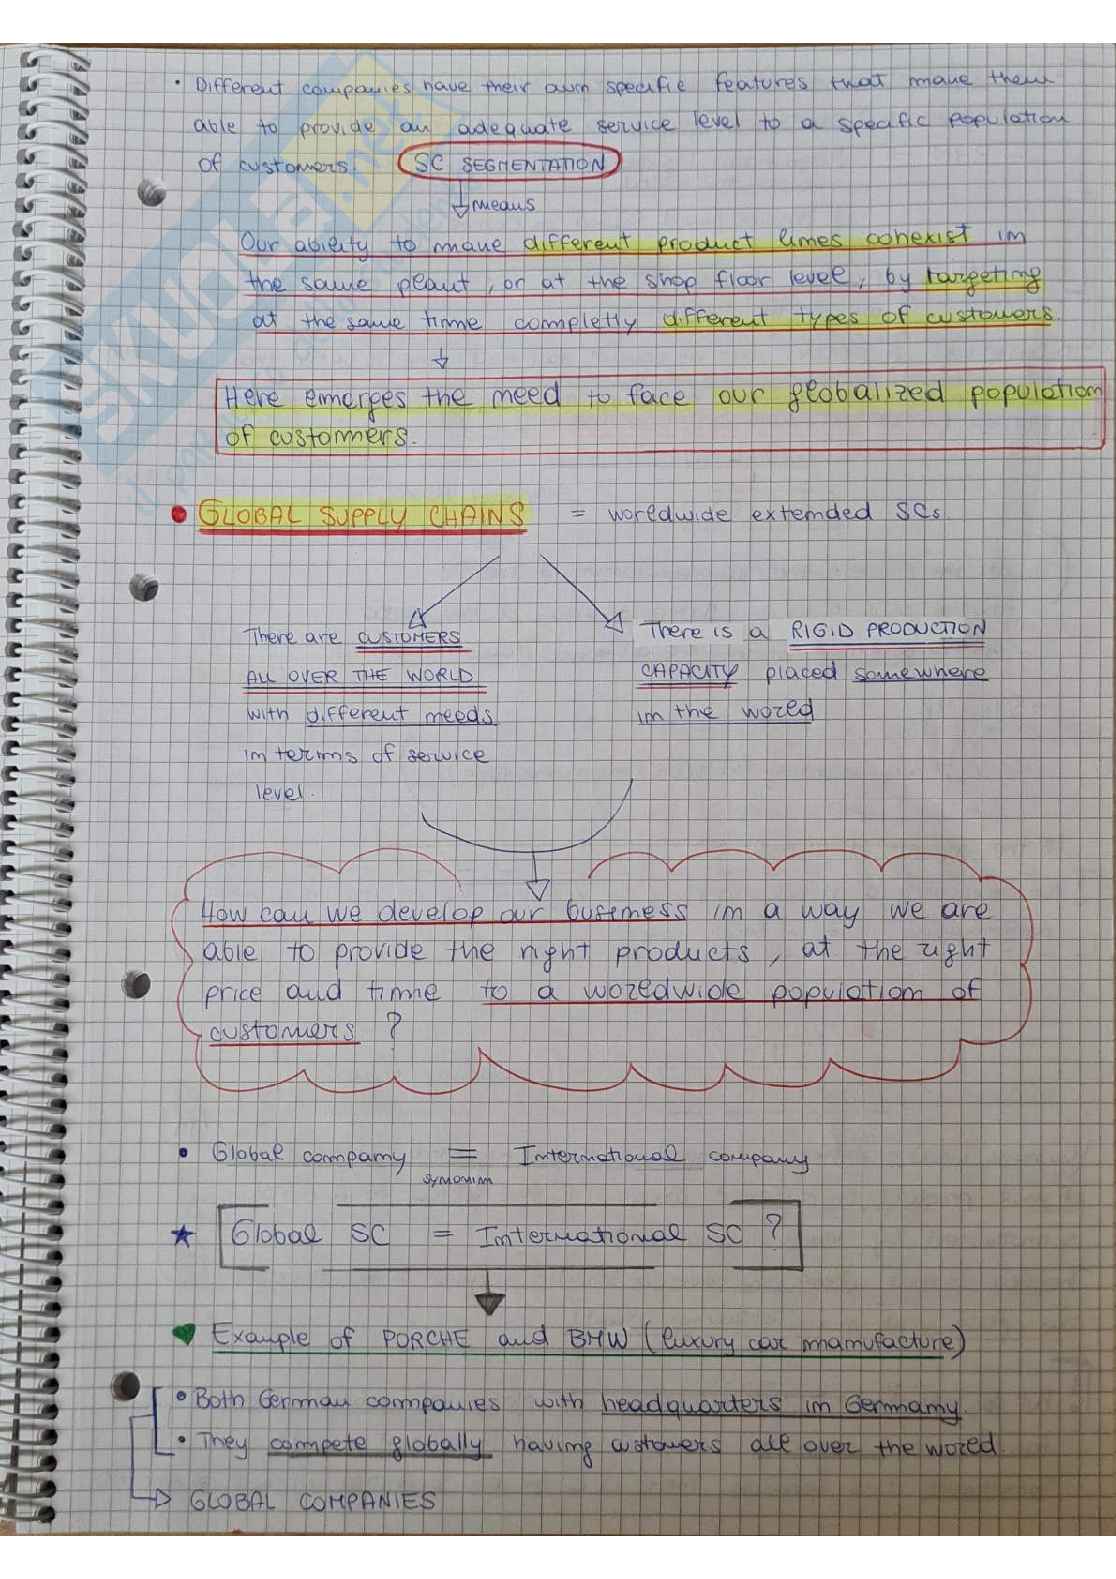 • Different companies have their own specific features that make them
able to provide an adequate service level to a specific population
of customers. SC SEGMENTATION
means
Our ability to make different product lines cohexist in
the same plant, or at the shop floor level, by targeting
at the same time completly different types of customers
Here emerges the need to face our globalized population
of customers.
• GLOBAL SUPPLY CHAINS = worldwide extended SCs
There are CUSTOMERS
ALL OVER THE WORLD
with different needs
in terms of service
level.
There is a RIGID PRODUCTION
CAPACITY placed somewhere
in the world
How can we develop our business in a way we are
able to provide the right products, at the right
price and time to a worldwide population of
customers ?
• Global company = International company
synonim
★ Global SC = International SC ?
♥ Example of PORCHE and BMW (luxury car manufacture)
• Both German companies with headquarters in Germany.
• They compete globally having customers all over the world
GLOBAL COMPANIES
SKUOLA.net